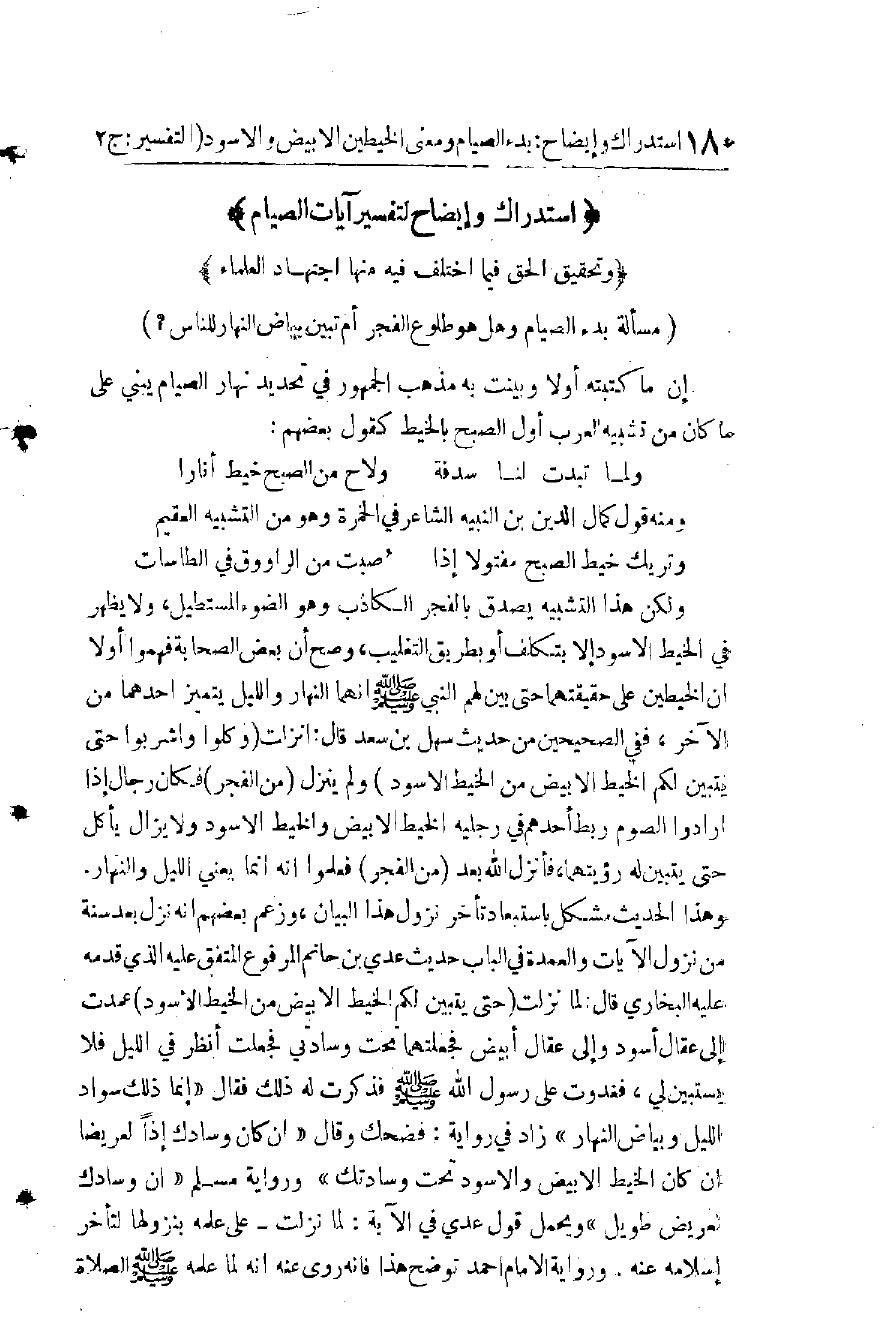 ١٨٠ استدراك وإيضاح: بدء الصيام ومعنى الخيطين الابيض والاسود (التفسير: ج ٢
﴿ استدراك وإيضاح لتفسير آيات الصيام ﴾
﴿ وتحقيق الحق فيما اختلف فيه منها اجتهاد العلماء ﴾
( مسألة بدء الصيام وهل هو طلوع الفجر أم تبين بياض النهار للناس ؟ )
إن ما كتبته أولا وبينت به مذهب الجمهور في تحديد نهار الصيام يبني على
ما كان من تشبيه العرب أول الصبح بالخيط كقول بعضهم :
ولما تبدت لنا سدفة ولاح من الصبح خيط أنارا
ومنه قول كمال الدين بن النبيه الشاعر في الخمرة وهو من التشبيه العقيم
وتريك خيط الصبح مفتولا إذا صبت من الراووق في الطاسات
ولكن هذا التشبيه يصدق بالفجر الكاذب وهو الضوء المستطيل، ولا يظهر
في الخيط الاسود إلا بتكلف أو بطريق التغليب، وصح أن بعض الصحابة فهموا أولا
ان الخيطين على حقيقتهما حتى بين لهم النبي ﷺ انهما النهار والليل يتميز احدهما من
الآخر ، ففي الصحيحين من حديث سهل بن سعد قال: انزلت (وكلوا واشربوا حتى
يتبين لكم الخيط الابيض من الخيط الاسود ) ولم ينزل (من الفجر) فكان رجال إذا
ارادوا الصوم ربط أحدهم في رجليه الخيط الابيض والخيط الاسود ولا يزال يأكل
حتى يتبين له رؤيتهما، فأنزل الله بعد (من الفجر) فعلموا انه انما يعني الليل والنهار.
وهذا الحديث مشكل باستبعاد تأخر نزول هذا البيان ، وزعم بعضهم انه نزل بعد سنة
من نزول الآيات والعمدة في الباب حديث عدي بن حاتم المرفوع المتفق عليه الذي قدمه
عليه البخاري قال: لما نزلت (حتى يتبين لكم الخيط الابيض من الخيط الاسود) عمدت
إلى عقال أسود وإلى عقال أبيض فجعلتهما تحت وسادتي فجعلت أنظر في الليل فلا
يستبين لي ، فغدوت على رسول الله ﷺ فذكرت له ذلك فقال «إنما ذلك سواد
الليل وبياض النهار » زاد في رواية : فضحك وقال « ان كان وسادك إذاً لعريضا
ان كان الخيط الابيض والاسود تحت وسادتك » ورواية مسلم « ان وسادك
لعريض طويل » ويحمل قول عدي في الآية : لما نزلت - على علمه بنزولها لتأخر
إسلامه عنه . ورواية الامام احمد توضح هذا فانه روى عنه انه لما علمه ﷺ الصلاة